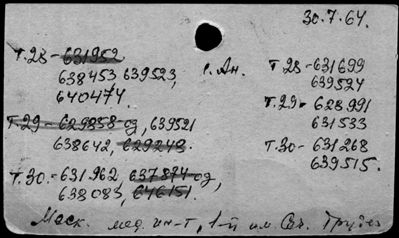 30.7.64.
т.28-631952
638453 639523,
640474
т.29-629858-од, 639521
638642, 629248.
т.30.-631962 637874-од,
638083, 646151.
с. Ан.
т 28-631699
639524
т.29-628991
631533
т.30-631268
639515.
Моск. мед. ин-т, 1-й им. Сеч.